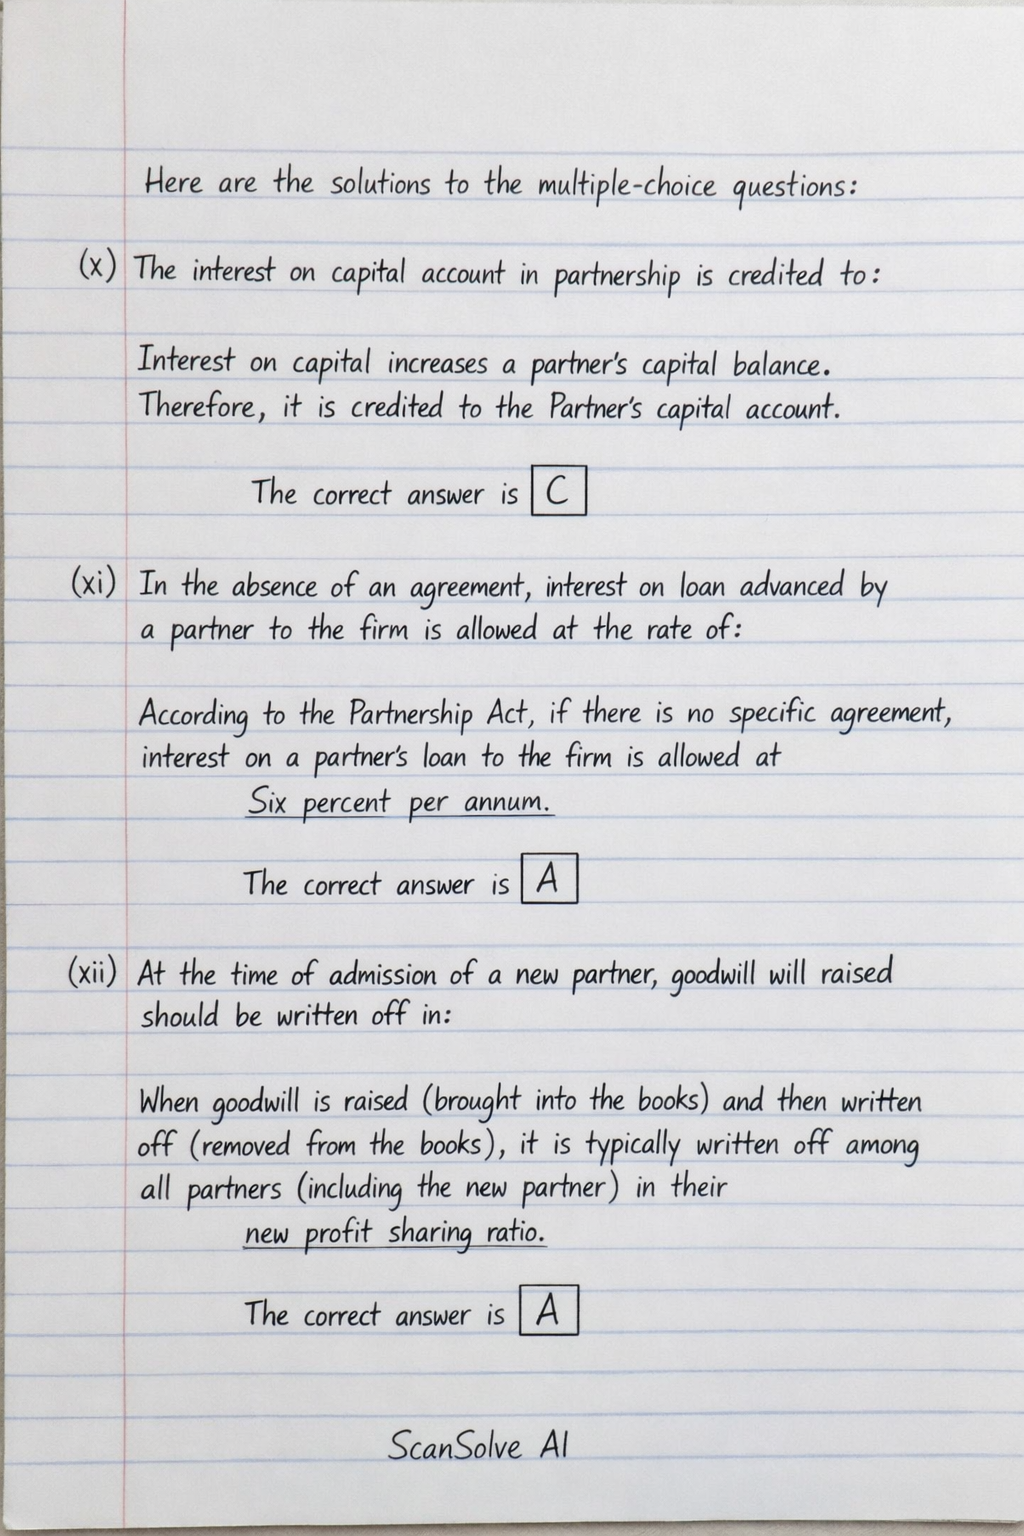 Here are the solutions to the multiple-choice questions:
(x) The interest on capital account in partnership is credited to:
Interest on capital increases a partner's capital balance.
Therefore, it is credited to the Partner's capital account.
The correct answer is C
(xi) In the absence of an agreement, interest on loan advanced by
a partner to the firm is allowed at the rate of:
According to the Partnership Act, if there is no specific agreement,
interest on a partner's loan to the firm is allowed at
Six percent per annum.
The correct answer is A
(xii) At the time of admission of a new partner, goodwill will raised
should be written off in:
When goodwill is raised (brought into the books) and then written
off (removed from the books), it is typically written off among
all partners (including the new partner) in their
new profit sharing ratio.
The correct answer is A
ScanSolve AI